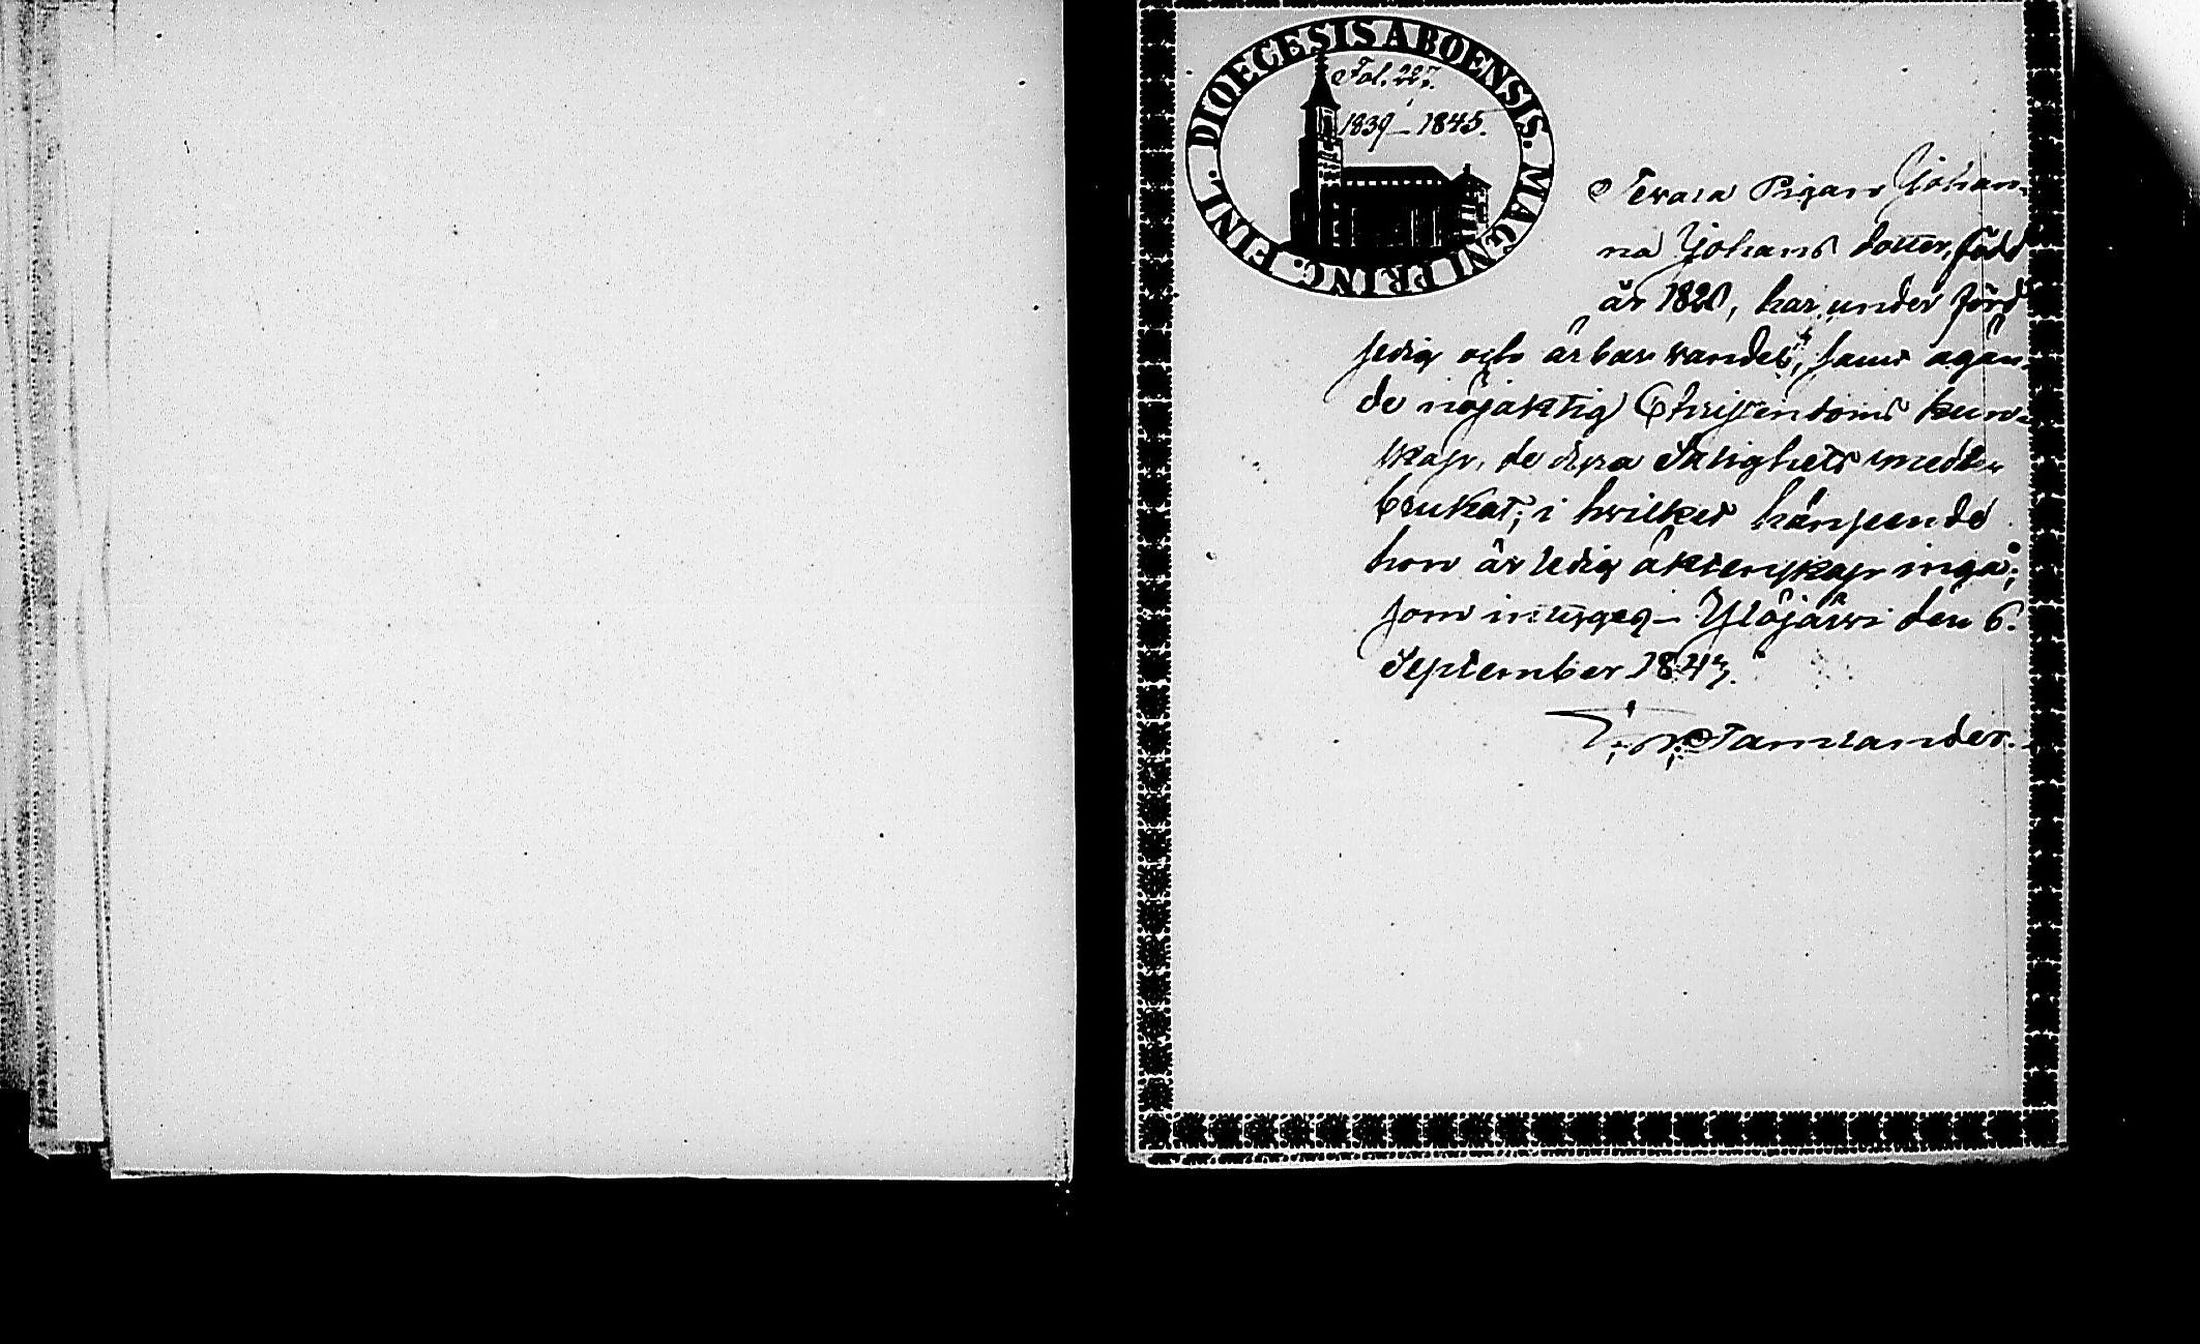 DIOECESIS ABOENSIS. MAGNI PRINC. FINL.
Fol. 227.
1839–1845.
Pigan Johan-
na Johans dotter, född
år 1820, har, under förd
sedig och ärbar vandel, samt ägan-
de nöjaktig Christendoms kun-
skap, de dyra Salighets medlen
brukat; i hvilket hänseende
hon är ledig äktenskap ingå;
som intygas. Ylöjärvi den 6.
September 1843.
Tamlander.